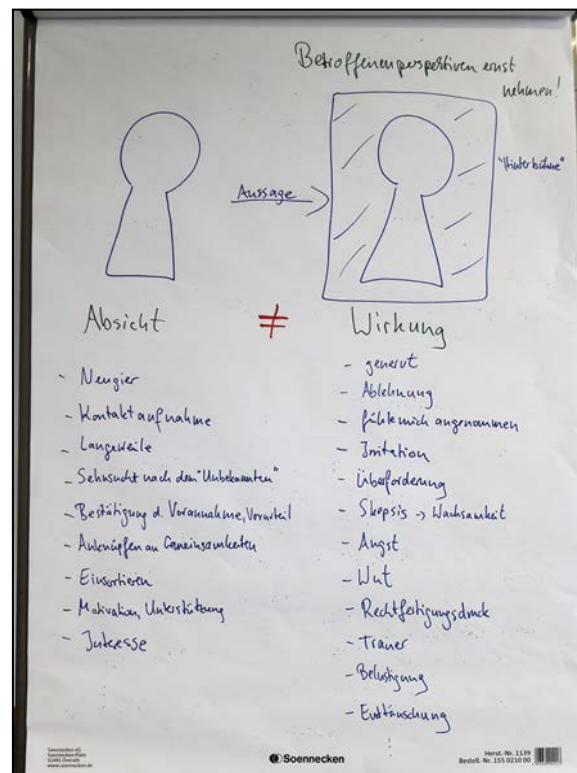 Betroffenenperspektiven ernst
nehmen!
"Hinterbühne"
Aussage
Absicht ≠ Wirkung
- Neugier
- Kontaktaufnahme
- Langeweile
- Sehnsucht nach dem "Unbekannten"
- Bestätigung d. Vorannahme, Vorurteil
- Anknüpfen an Gemeinsamkeiten
- Einsortieren
- Motivation, Unterstützung
- Interesse
- genervt
- Ablehnung
- fühle mich angenommen
- Irritation
- Überforderung
- Skepsis → Wachsamkeit
- Angst
- Wut
- Rechtfertigungsdruck
- Trauer
- Belustigung
- Enttäuschung
Soennecken eG
Soennecken-Platz
51491 Overath
www.soennecken.de
Soennecken
Herst.-Nr. 1139
Bestell.-Nr. 155 0210 00